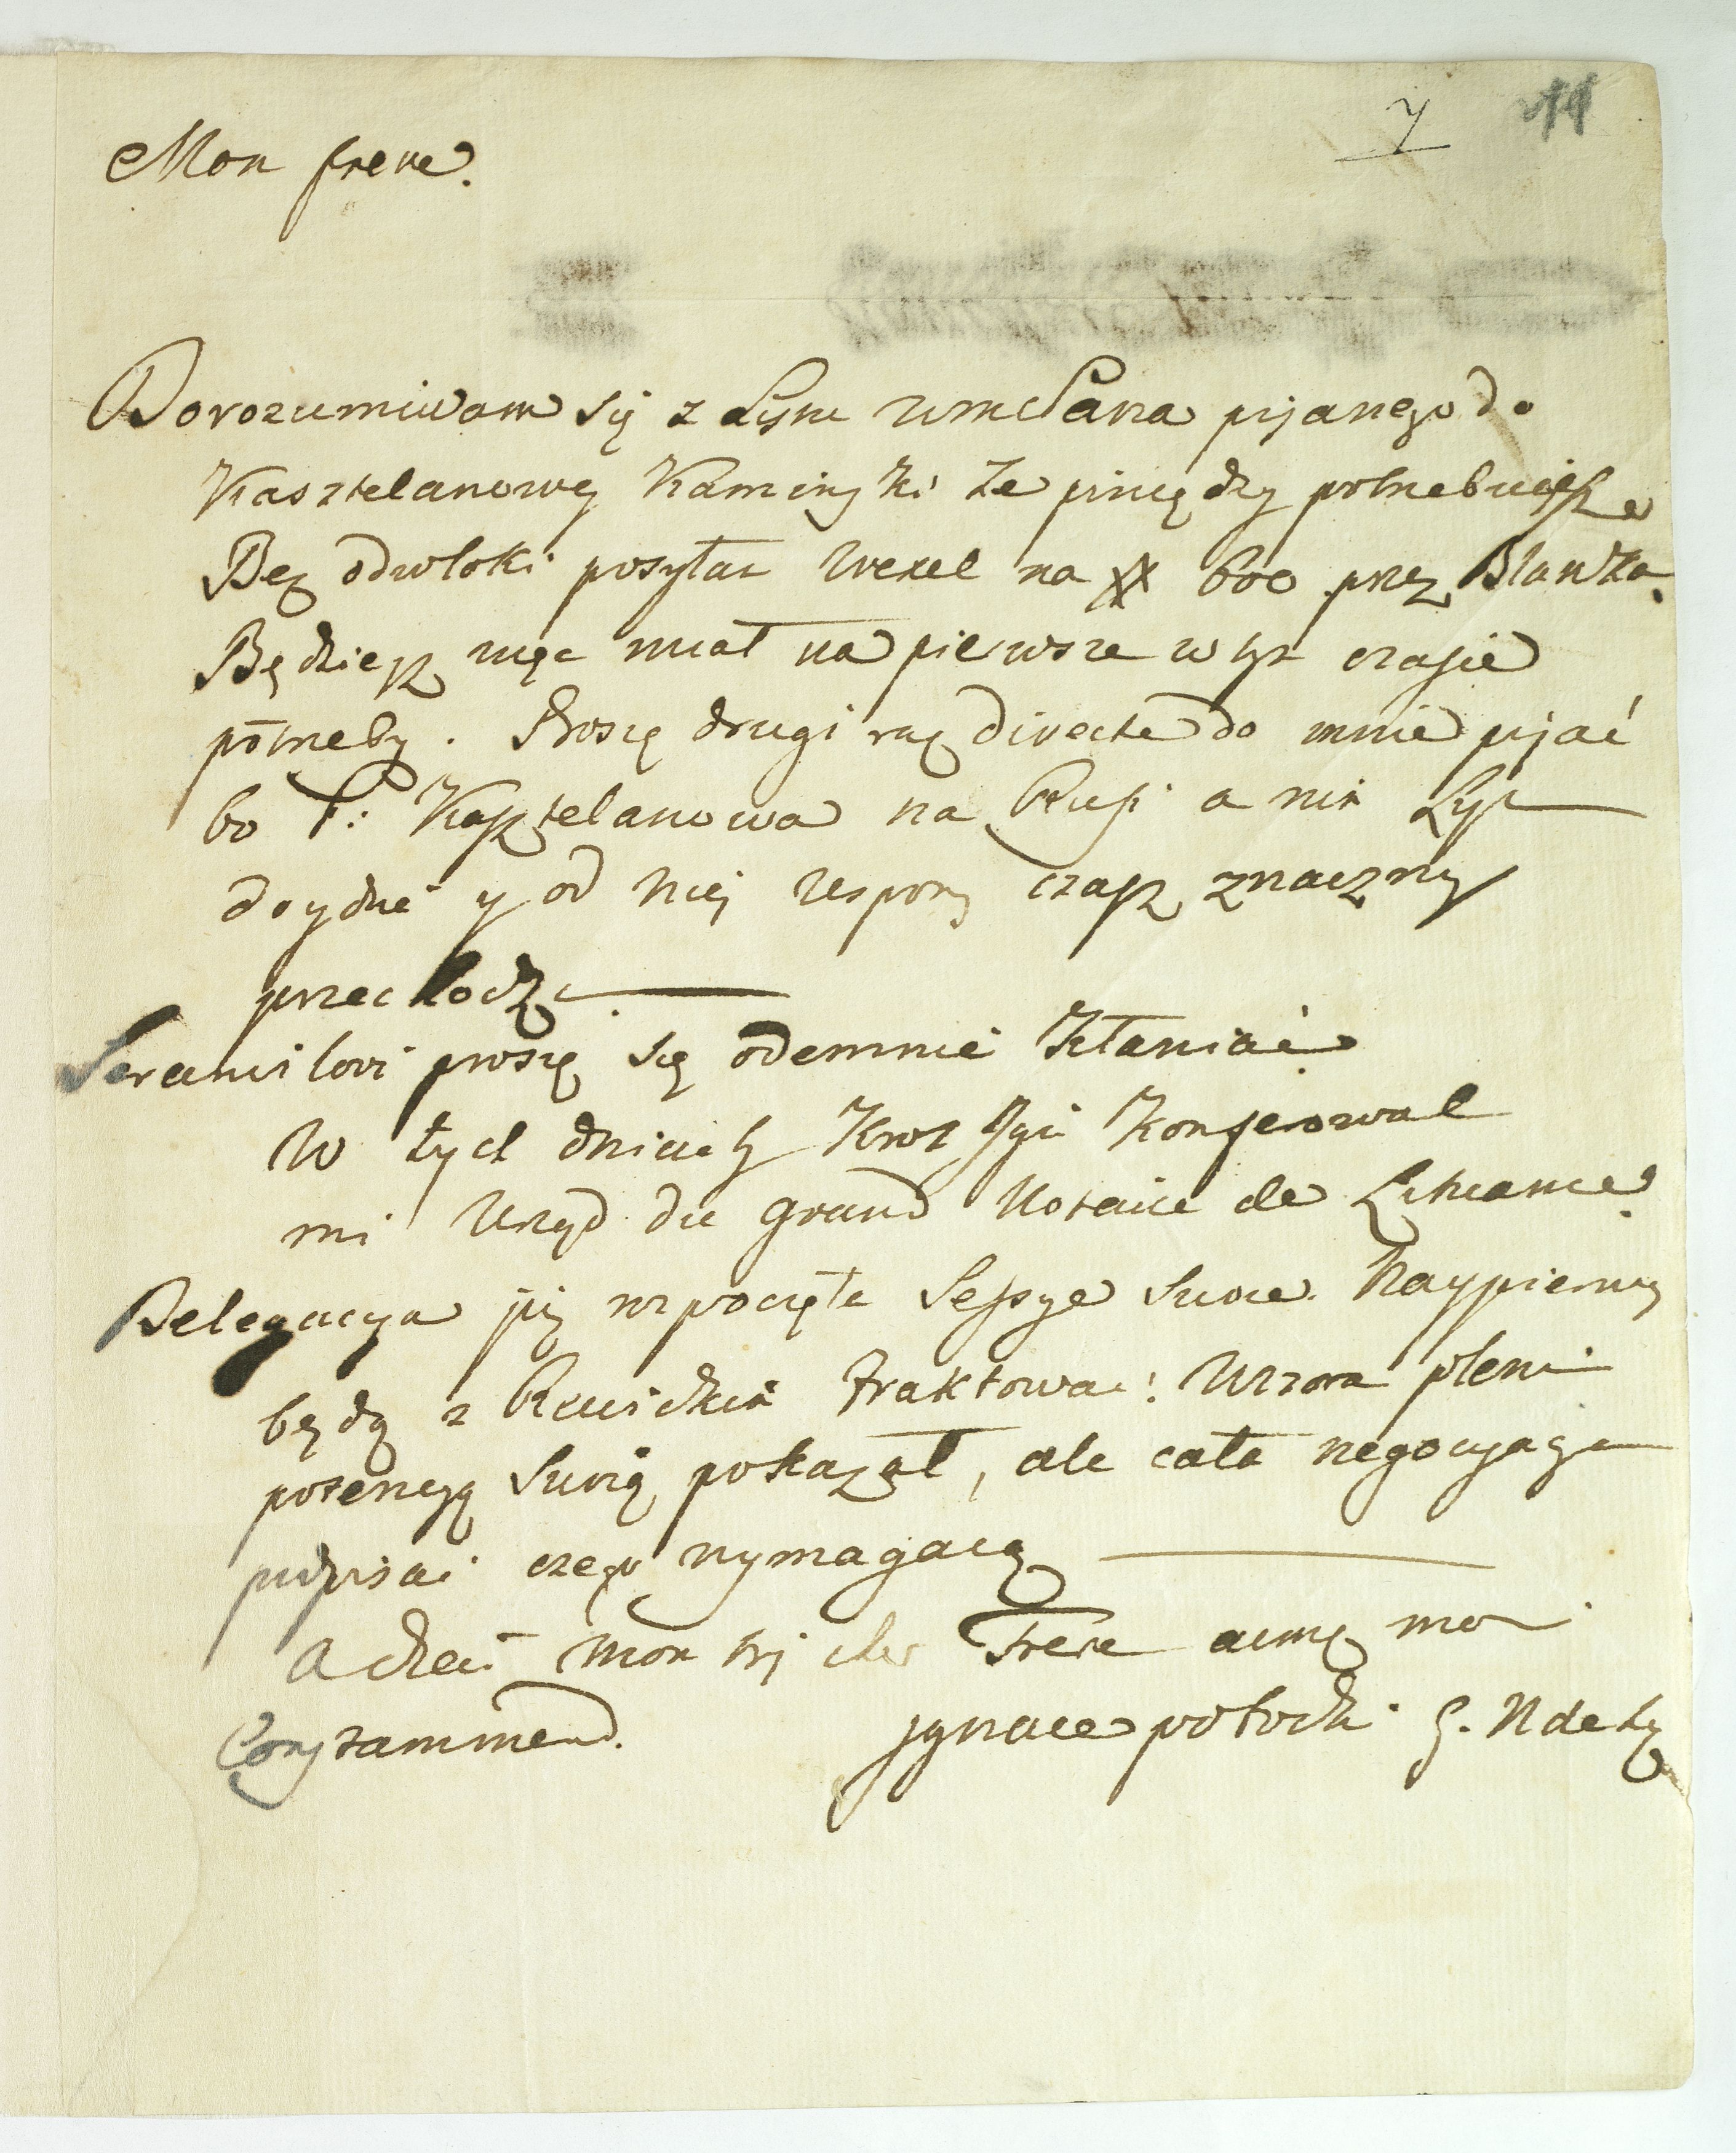 7 11
Mon frere.
Dorozumiwam się z Listu WmcPana pisanego do
Kasztelanowey Kaminski ze pieniędzy potrzebuiesz
Bez odwłoki posyłam Wexel na # 600 przez Blanka.
Będziesz więc miał na pierwsze w tym czasie
potrzeby. Proszę drugi raz directe do mnie pisać
bo P: Kasztelanowa na Rusi a nim List
doydzie y od niej respons czasz znaczny
przechodzi
proszę się odemnie kłaniać.
W tych dniach Krol Jmć konferował
mi Urząd du grand Notaire de Lithuanie.
Delegacya już rozpoczęła Sessye Swoie. Naypierwey
będą z Rewickim traktować. Wczora pleni
potencyą Swoią pokazał, ale cała negocyacya
podpisać czego wymagaią
Adieu mon trs cher Frere aimez moi
Constamment. Ignace Potocki G. N de L